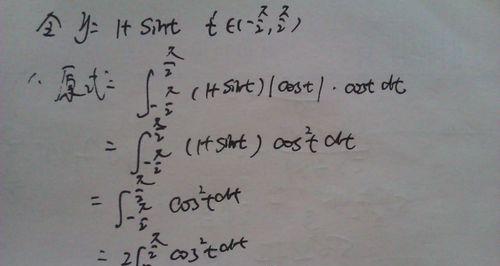 令 y = 1+sint t∈(-π/2, π/2)
∴ 原式= ∫_{-π/2}^{π/2} (1+sint)|cost|·cost dt
= ∫_{-π/2}^{π/2} (1+sint) cos²t dt
= ∫_{-π/2}^{π/2} cos²t dt
= 2∫^{π/2} cos²t dt